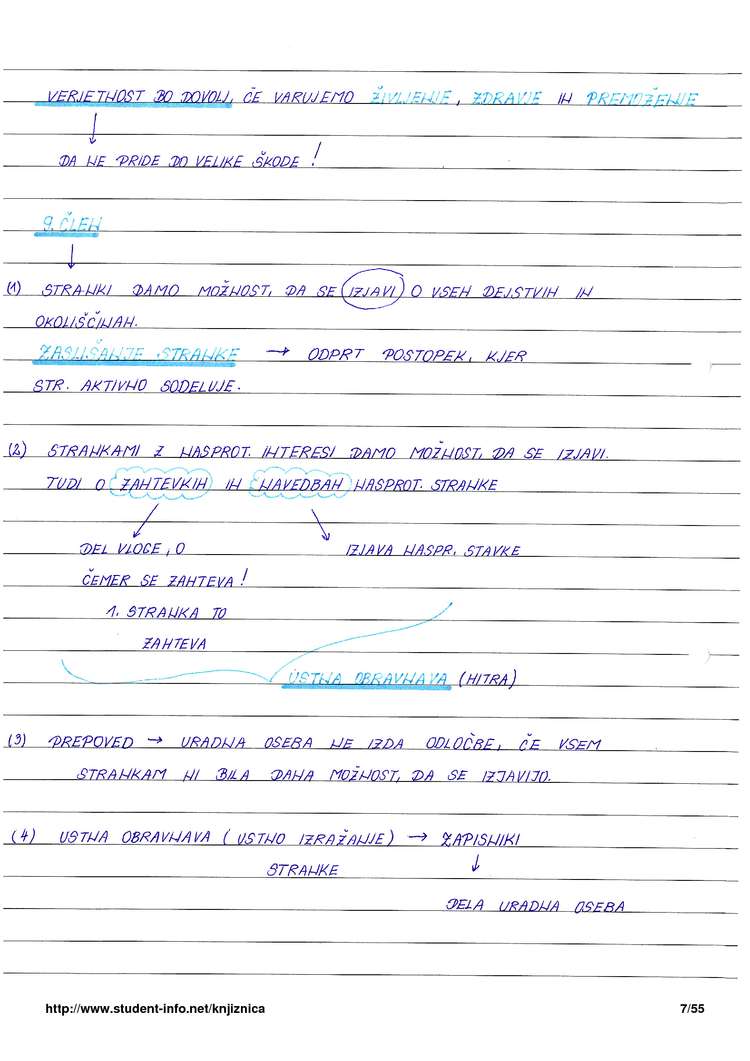 VERJETNOST BO DOVOLJ, ČE VARUJEMO ŽIVLJENJE, ZDRAVJE IN PREMOŽENJE
DA NE PRIDE DO VELIKE ŠKODE!
9. ČLEN
(1) STRANKI DAMO MOŽNOST, DA SE IZJAVI O VSEH DEJSTVIH IN
OKOLIŠČINAH.
ZASLIŠANJE STRANKE → ODPRT POSTOPEK, KJER
STR. AKTIVNO SODELUJE.
(2) STRANKAMI Z NASPROT. INTERESI DAMO MOŽNOST, DA SE IZJAVI.
TUDI O ZAHTEVKIH IN NAVEDBAH NASPROT. STRANKE
DEL VLOGE, O IZJAVA NASPR. STAVKE
ČEMER SE ZAHTEVA!
1. STRANKA TO
ZAHTEVA
USTNA OBRAVNAVA (HITRA)
(3) PREPOVED → URADNA OSEBA NE IZDA ODLOČBE, ČE VSEM
STRANKAM NI BILA DANA MOŽNOST, DA SE IZJAVIJO.
(4) USTNA OBRAVNAVA (USTNO IZRAŽANJE) → ZAPISNIKI
STRANKE
DELA URADNA OSEBA
http://www.student-info.net/knjiznica 7/55